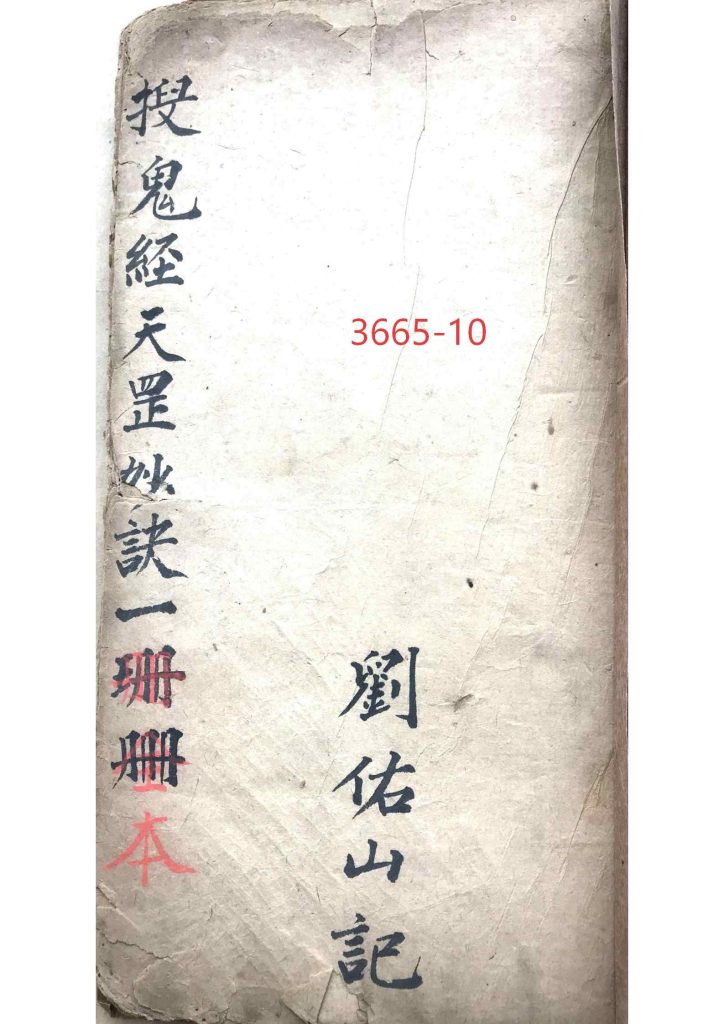 3665-10
劉佑山記
搜鬼経天罡妙訣一珊冊
本